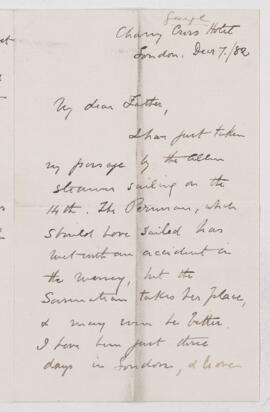 George
Charing Cross Hotel
London. Decr 7./82
My dear Father,
I have just taken
my passage by the Allan
steamer sailing on the
14th. The Peruvian, which
should have sailed has
met with an accident in
the Mersey, but the
Sarmatian takes her place,
& may even be better.
I have been just three
days in London, & have